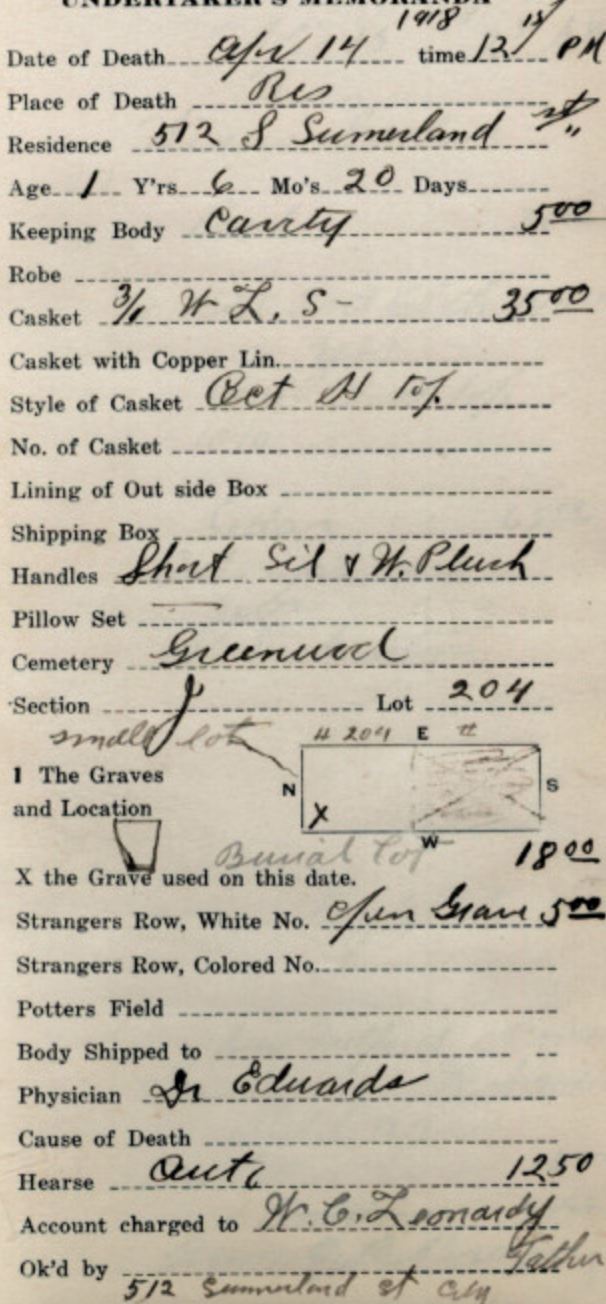 UNDERTAKER'S MEMORANDA
1918
Date of Death Apr 14 time 12 15 PM
Place of Death Res
Residence 512 S Sumerland st "
Age 1 Y'rs 6 Mo's 20 Days
Keeping Body Cavity 5 00
Robe
Casket W L. S- 35 00
Casket with Copper Lin.
Style of Casket Oct
No. of Casket
Lining of Out side Box
Shipping Box
Handles Short Sil & W. Plush
Pillow Set —
Cemetery Greenwood
Section J Lot 204
small lot # 204 E
1 The Graves N S
and Location X
Burial Lot W 18 00
X the Grave used on this date.
Strangers Row, White No. Open Grave 5 00
Strangers Row, Colored No.
Potters Field
Body Shipped to
Physician Dr Edwards
Cause of Death
Hearse Auto 12 50
Account charged to W. C. Leonardy
Ok'd by Father
512 Summerland st City